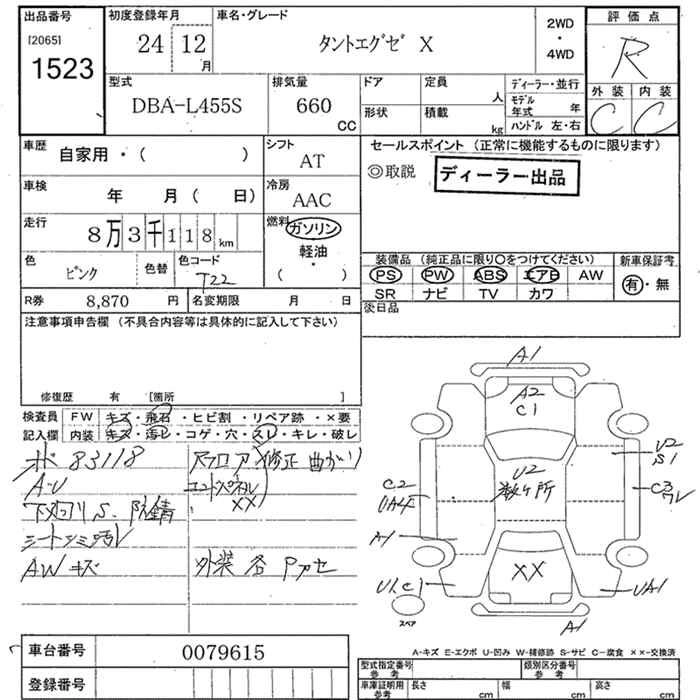 出品番号
[2065]
1523
初度登録年月
24 12 月
車名・グレード
タントエグゼ X
2WD
・
4WD
評価点
R
外装 内装
C C
型式
DBA-L455S
排気量
660
CC
ドア
形状
定員
人
積載
kg
ディーラー・並行
モデル年式 年
ハンドル 左・右
車歴
自家用・( )
シフト
AT
車検
年 月( 日)
冷房
AAC
走行
8万3千118km
燃料
ガソリン
軽油
・
( )
色
ピンク
色替
色コード
T22
R券 8,870 円
名変期限 月 日
セールスポイント(正常に機能するものに限ります)
◎取説
ディーラー出品
装備品(純正品に限り〇をつけてください)
PS PW ABS エアB AW
SR ナビ TV カワ
新車保証書
有・無
後日品
注意事項申告欄(不具合内容等は具体的に記入して下さい)
修復歴 有 [箇所 ]
検査員
記入欄
FW キズ・飛石・ヒビ割・リペア跡・×要
内装 キズ・汚レ・コゲ・穴・スレ・キレ・破レ
メ 83118
A・U
下廻りS、防錆
シートシミ汚レ
AWキズ
リアフロア 修正 曲がり
エンドパネル
××
外装各Pカセ
A1
A2
C1
U2
S1
U2
数ヶ所
C2
UA4
C3
ワレ
A1
××
U1C1
UA1
A1
スペア
A-キズ E-エクボ U-凹み W-補修跡 S-サビ C-腐食 ××-交換済
車台番号
0079615
登録番号
型式指定番号
参考
類別区分番号
参考
車庫証明用
参考
長さ cm
幅 cm
高さ cm